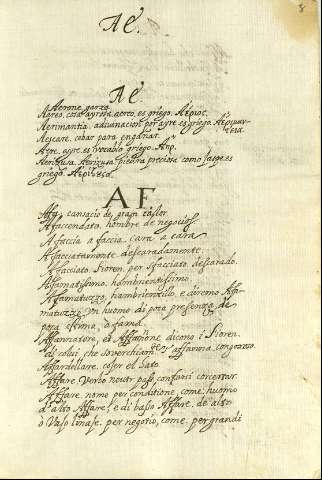 Ae.
8
Ae
Aerone. garza
Aereo, cosa ayrosa, aereo, es griego. Αέριος.
Aerimantia, adivinacion por ayre. es griego. Αέριμαντεια.
Aescare. cebar para engañar.
Aere, ayre. es vocablo griego. Αηρ.
Aerizusa. Aerizusa piedra preciosa como Jaspe. es
griego.
AF
cansacio de gran calor
Affaccendato, hombre de negocios
A faccia a faccia. cara a cara
Affacciatamente. descaradamente.
Affacciato. Fioren. per sfacciato, descarado.
Affamatissimo. hambrientissimo
Affamatuzzo, hambrientillo, e diremo Affa-
matuzzo, Un huomo di poca presenza, de
poca estima, o fama.
Affannatore, ed Affannone, dicono i Fioren.
di colui che soverchiam.te s'affanna. congoxoso.
Affardellare. coser el hato
Affare Verbo neutr. pass. confarsi concertar.
Affare. nome per conditione, come: huomo
d'alto Affare, e di basso Affare. de alto
o baxo linaje. per negotio, come. per grandi